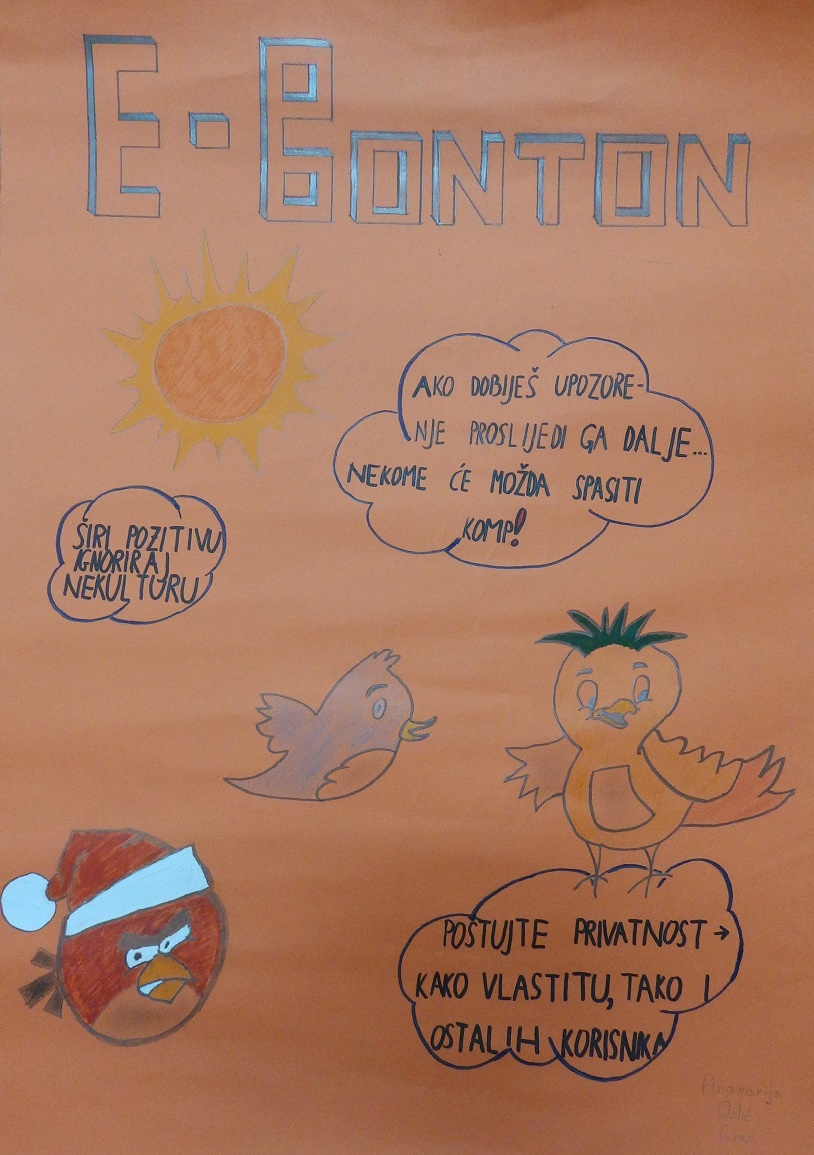 E-BONTON
AKO DOBIJEŠ UPOZORE-
NJE PROSLIJEDI GA DALJE...
NEKOME ĆE MOŽDA SPASITI
KOMP!
ŠIRI POZITIVU
IGNORIRAJ
NEKULTURU
POŠTUJTE PRIVATNOST →
KAKO VLASTITU, TAKO I
OSTALIH KORISNIKA
Anamarija